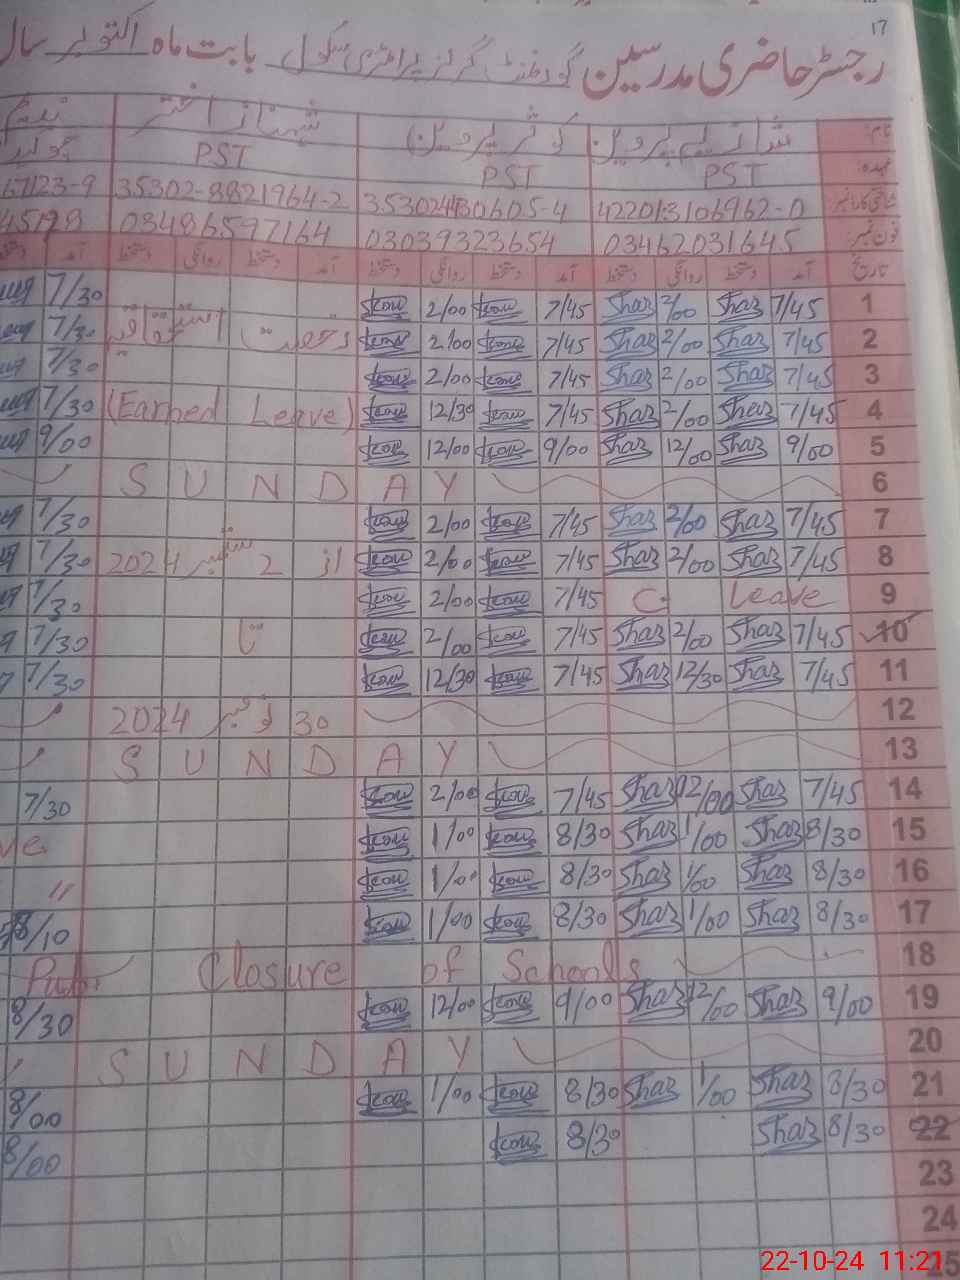 17
رجسٹر حاضری مدرسین گورنمنٹ گرلز پرائمری سکول بابت ماہ اکتوبر سال
نام: شازیہ پروین کوثر پروین شہناز اختر
عہدہ: PST PST PST
شناختی کارڈ نمبر: 42201-3106962-0 35302-4430605-4 35302-8821964-2 67123-9
فون نمبر: 03462031645 03039323654 03486597164 45198
تاریخ آمد دستخط روانگی دستخط آمد دستخط روانگی دستخط آمد دستخط روانگی دستخط آمد
1 7/45 Shaz 2/00 Shaz 7/45 Kou 2/00 Kou 7/30
2 7/45 Shaz 2/00 Shaz 7/45 Kou 2/00 Kou رخصت استحقاقیہ 7/30
3 7/45 Shaz 2/00 Shaz 7/45 Kou 2/00 Kou 7/30
4 7/45 Shaz 2/00 Shaz 7/45 Kou 12/30 Kou (Earned Leave) 7/30
5 9/00 Shaz 12/00 Shaz 9/00 Kou 12/00 Kou 9/00
6 SUNDAY
7 7/45 Shaz 2/00 Shaz 7/45 Kou 2/00 Kou 7/30
8 7/45 Shaz 2/00 Shaz 7/45 Kou 2/00 Kou از 2 ستمبر 2024 7/30
9 C. Leave 7/45 Kou 2/00 Kou 7/30
10 7/45 Shaz 2/00 Shaz 7/45 Kou 2/00 Kou تا 7/30
11 7/45 Shaz 12/30 Shaz 7/45 Kou 12/30 Kou 7/30
12 30 نومبر 2024
13 SUNDAY
14 7/45 Shaz 12/00 Shaz 7/45 Kou 2/00 Kou 7/30
15 8/30 Shaz 1/00 Shaz 8/30 Kou 1/00 Kou ve
16 8/30 Shaz 1/00 Shaz 8/30 Kou 1/00 Kou "
17 8/30 Shaz 1/00 Shaz 8/30 Kou 1/00 Kou 8/10
18 Closure of Schools
19 9/00 Shaz 12/00 Shaz 9/00 Kou 12/00 Kou 8/30
20 SUNDAY
21 8/30 Shaz 1/00 Shaz 8/30 Kou 1/00 Kou 8/00
22 8/30 Shaz 8/30 Kou 8/00
23
24
25
22-10-24 11:21